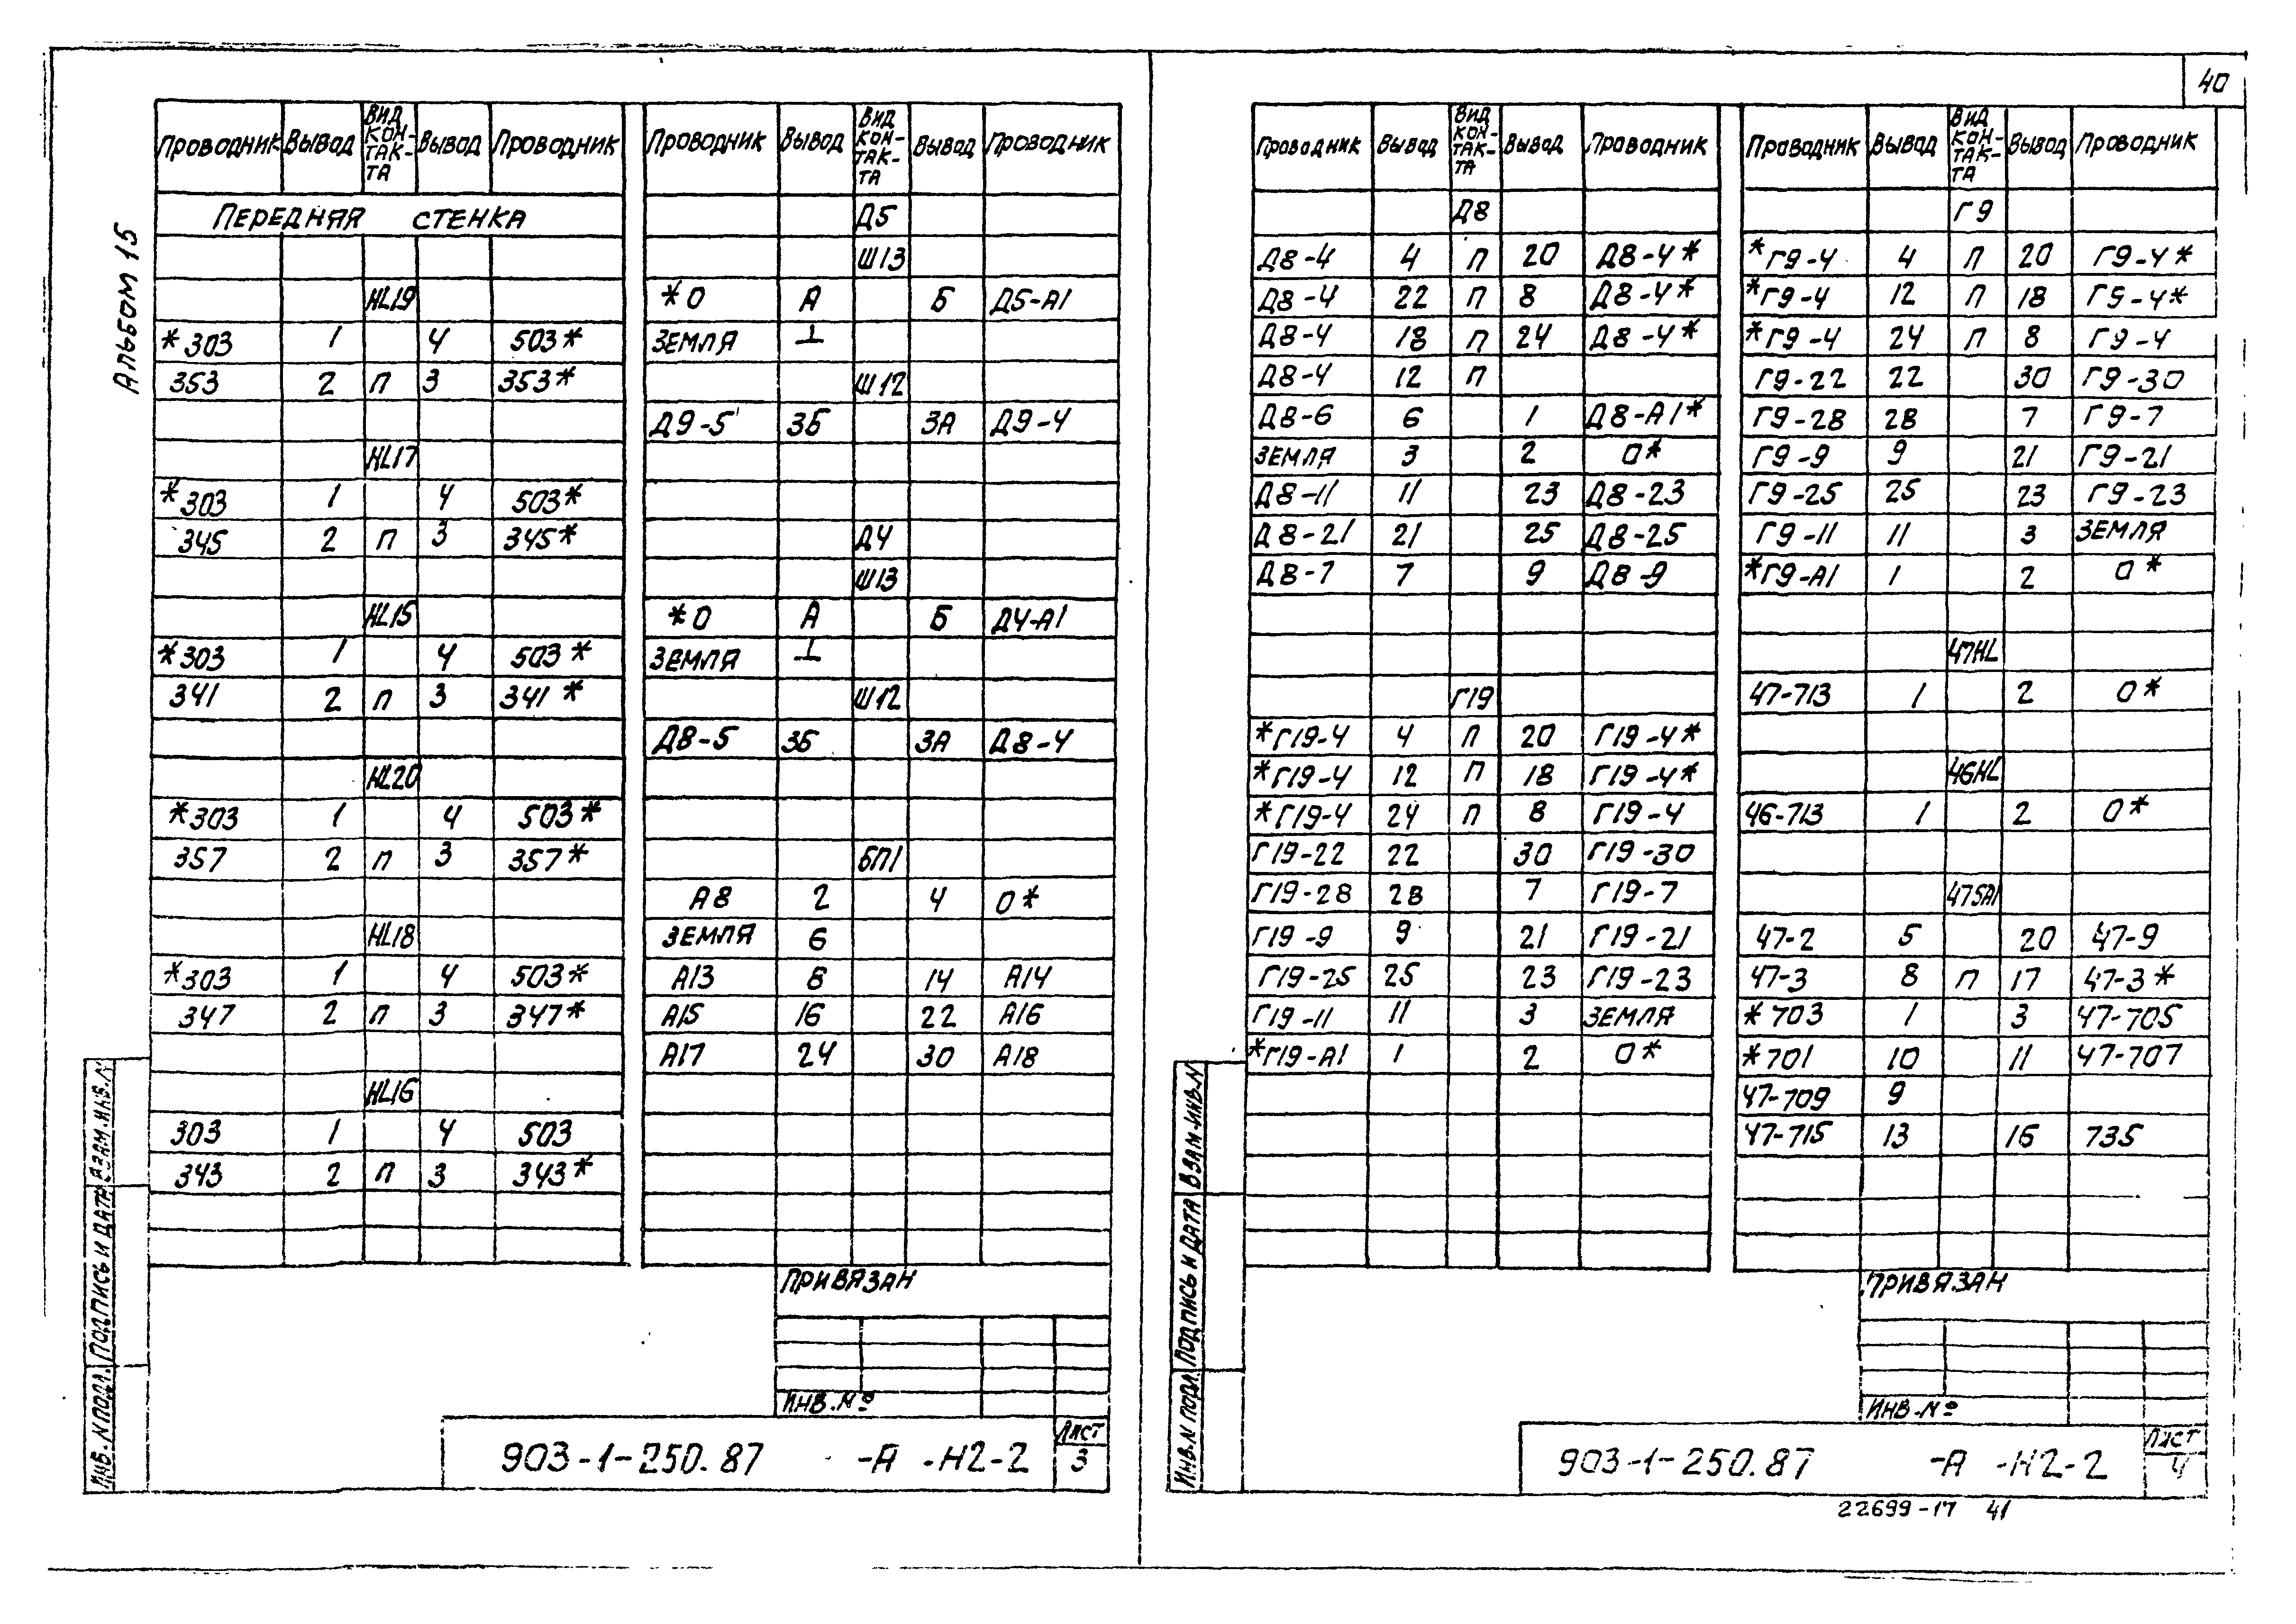 40
Альбом 15
Проводник Вывод Вид кон-так-та Вывод Проводник
Передняя стенка
HL19
*303 1 4 503*
353 2 П 3 353*
HL17
*303 1 4 503*
345 2 П 3 345*
HL15
*303 1 4 503*
341 2 П 3 341*
HL20
*303 1 4 503*
357 2 П 3 357*
HL18
*303 1 4 503*
347 2 П 3 347*
HL16
303 1 4 503
343 2 П 3 343*
Проводник Вывод Вид кон-так-та Вывод Проводник
Д5
Ш13
*0 А Б Д5-А1
Земля ⊥
Ш12
Д9-5 3Б 3А Д9-4
Д4
Ш13
*0 А Б Д4-А1
Земля ⊥
Ш12
Д8-5 3Б 3А Д8-4
БП1
А8 2 4 0*
Земля 6
А13 8 14 А14
А15 16 22 А16
А17 24 30 А18
Привязан
Инв.№
903-1-250.87 -А -Н2-2
Лист
3
Инв.N подл. Подпись и дата Взам.инв.N
Проводник Вывод Вид кон-так-та Вывод Проводник
Д8
Д8-4 4 П 20 Д8-4*
Д8-4 22 П 8 Д8-4*
Д8-4 18 П 24 Д8-4*
Д8-4 12 П
Д8-6 6 1 Д8-А1*
Земля 3 2 0*
Д8-11 11 23 Д8-23
Д8-21 21 25 Д8-25
Д8-7 7 9 Д8-9
Г19
*Г19-4 4 П 20 Г19-4*
*Г19-4 12 П 18 Г19-4*
*Г19-4 24 П 8 Г19-4
Г19-22 22 30 Г19-30
Г19-28 28 7 Г19-7
Г19-9 9 21 Г19-21
Г19-25 25 23 Г19-23
Г19-11 11 3 Земля
*Г19-А1 1 2 0*
Проводник Вывод Вид кон-так-та Вывод Проводник
Г9
*Г9-4 4 П 20 Г9-4*
*Г9-4 12 П 18 Г9-4*
*Г9-4 24 П 8 Г9-4
Г9-22 22 30 Г9-30
Г9-28 28 7 Г9-7
Г9-9 9 21 Г9-21
Г9-25 25 23 Г9-23
Г9-11 11 3 Земля
*Г9-А1 1 2 0*
47HL
47-713 1 2 0*
46HL
46-713 1 2 0*
47SA1
47-2 5 20 47-9
47-3 8 П 17 47-3*
*703 1 3 47-705
*701 10 11 47-707
47-709 9
47-715 13 16 735
Привязан
Инв.№
903-1-250.87 -А -Н2-2
Лист
4
Инв.N подл. Подпись и дата Взам.инв.N
22699-17 41